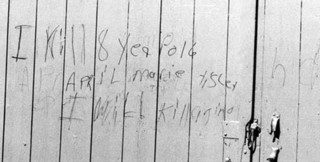 I Kill 8 yea Fold
April marie tisley
I will Kill agina